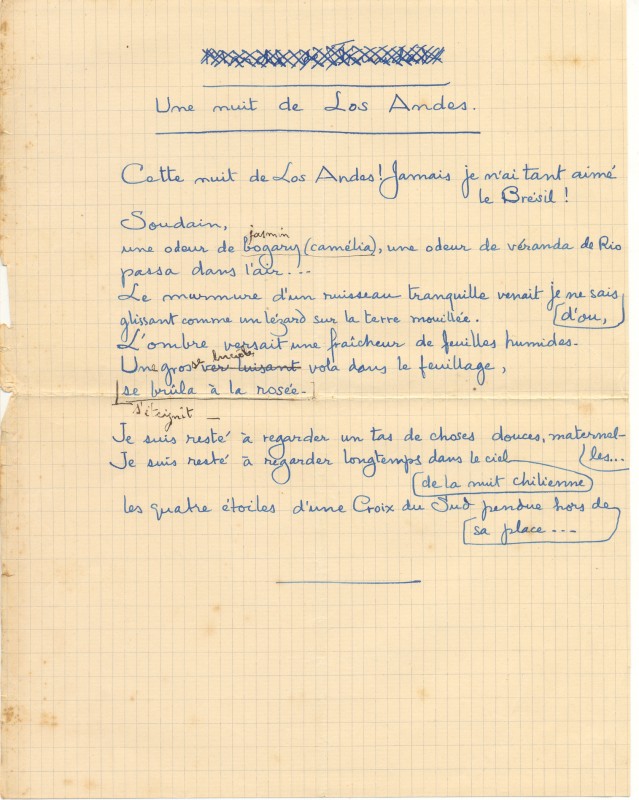 Une nuit de Los Andes.
Cette nuit de Los Andes! Jamais je n'ai tant aimé
le Brésil!
Soudain,
jasmin
une odeur de bogary (camélia), une odeur de véranda de Rio
passa dans l'air...
Le murmure d'un ruisseau tranquille venait je ne sais
d'ou,
glissant comme un lézard sur la terre mouillée.
L'ombre versait une fraîcheur de feuilles humides.
se luciole
Une gros ver luisant vola dans le feuillage,
se brûla à la rosée.
s'éteignit
Je suis resté à regarder un tas de choses douces, maternel-
les...
Je suis resté à regarder longtemps dans le ciel
de la nuit chilienne
les quatre étoiles d'une Croix du Sud pendue hors de
sa place...